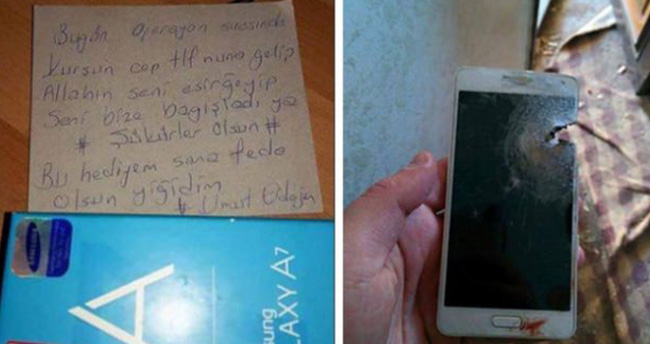 Bugün operasyon sırasında
Kurşun cep tlf nuna gelip
Allahın seni esirgeyip
Seni bize bağışladı ya
# Şükürler olsun #
Bu hediyem sana feda
olsun yiğidim
# Umut
SAMSUNG
A
sung
LAXY A7